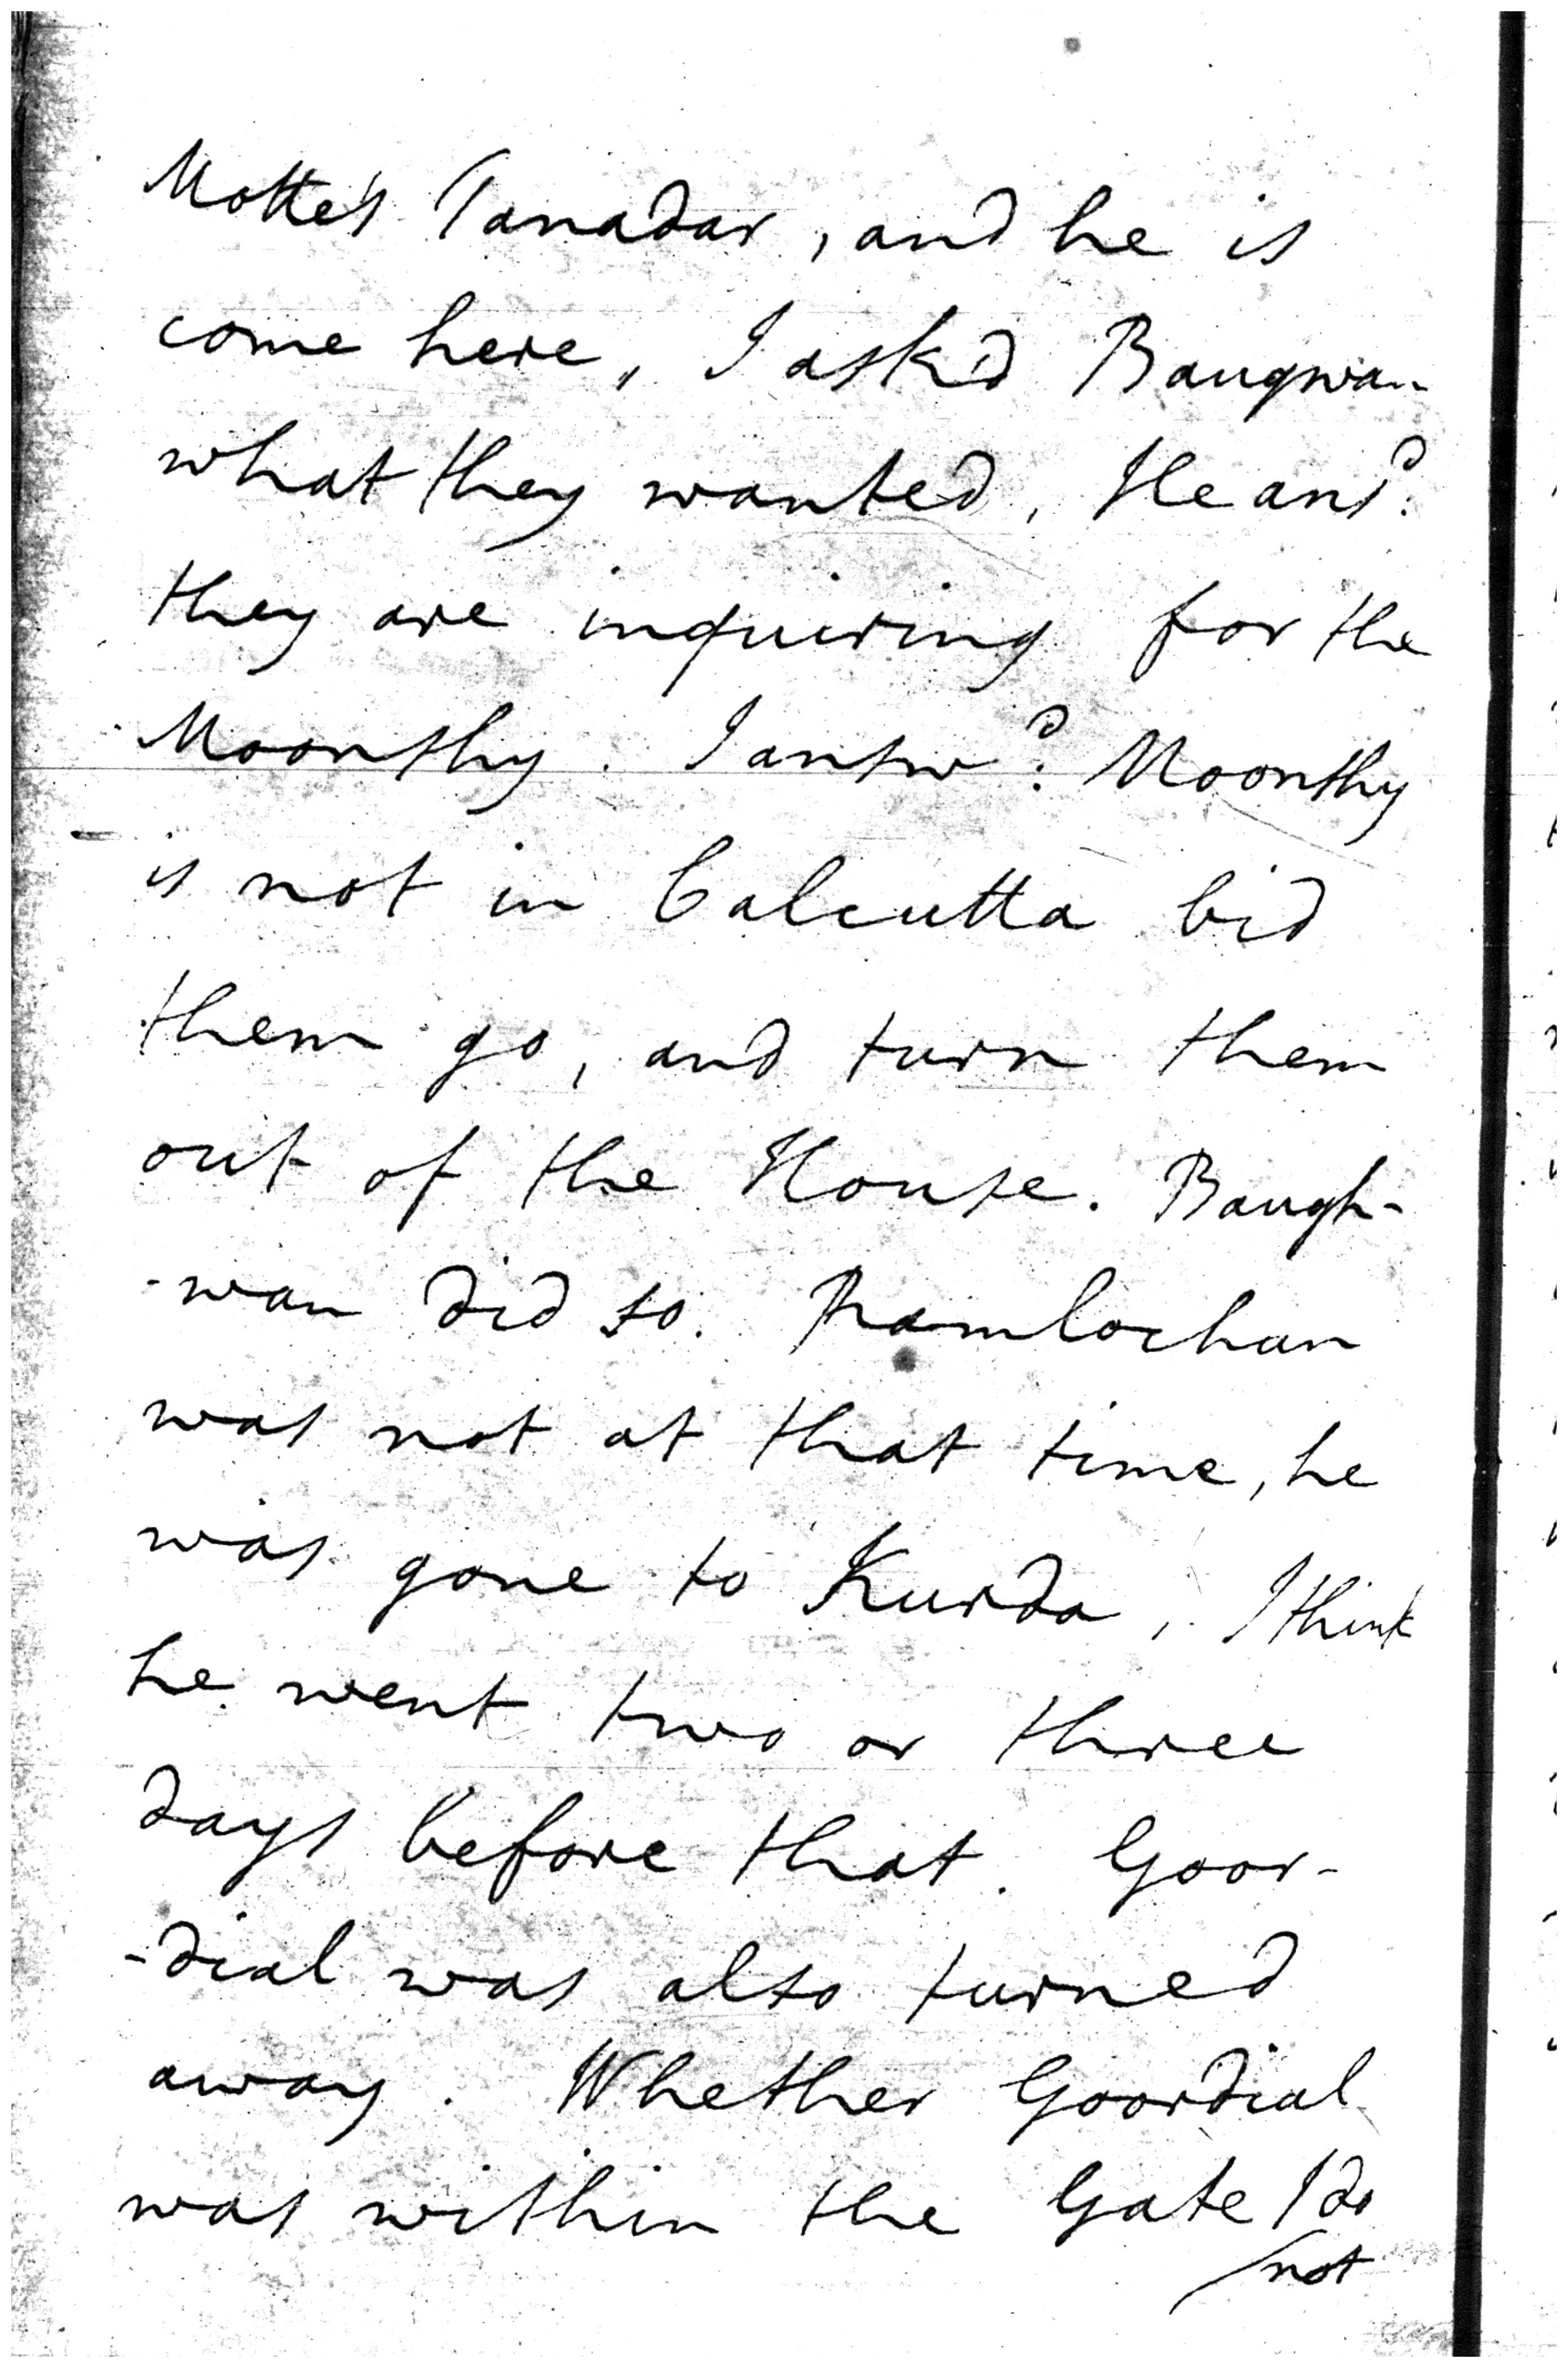 Motte's Tanadar, and he is
come here, I ask'd Baugwan
what they wanted, He ans.d
they are inquiring for the
Moonshy. I answ.d Moonshy
is not in Calcutta bid
them go, and turn them
out of the House. Baugh-
-wan did so. Ramlochan
was not at that time, he
was gone to Kurda, I think
he went two or three
days before that. Goor-
-dial was also turned
away. Whether Goordial
was within the Gate I do
not